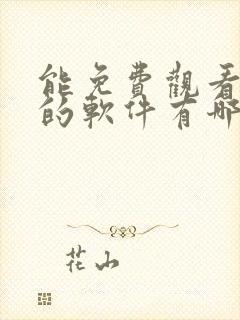 能免費觀看
的軟件有哪
花山